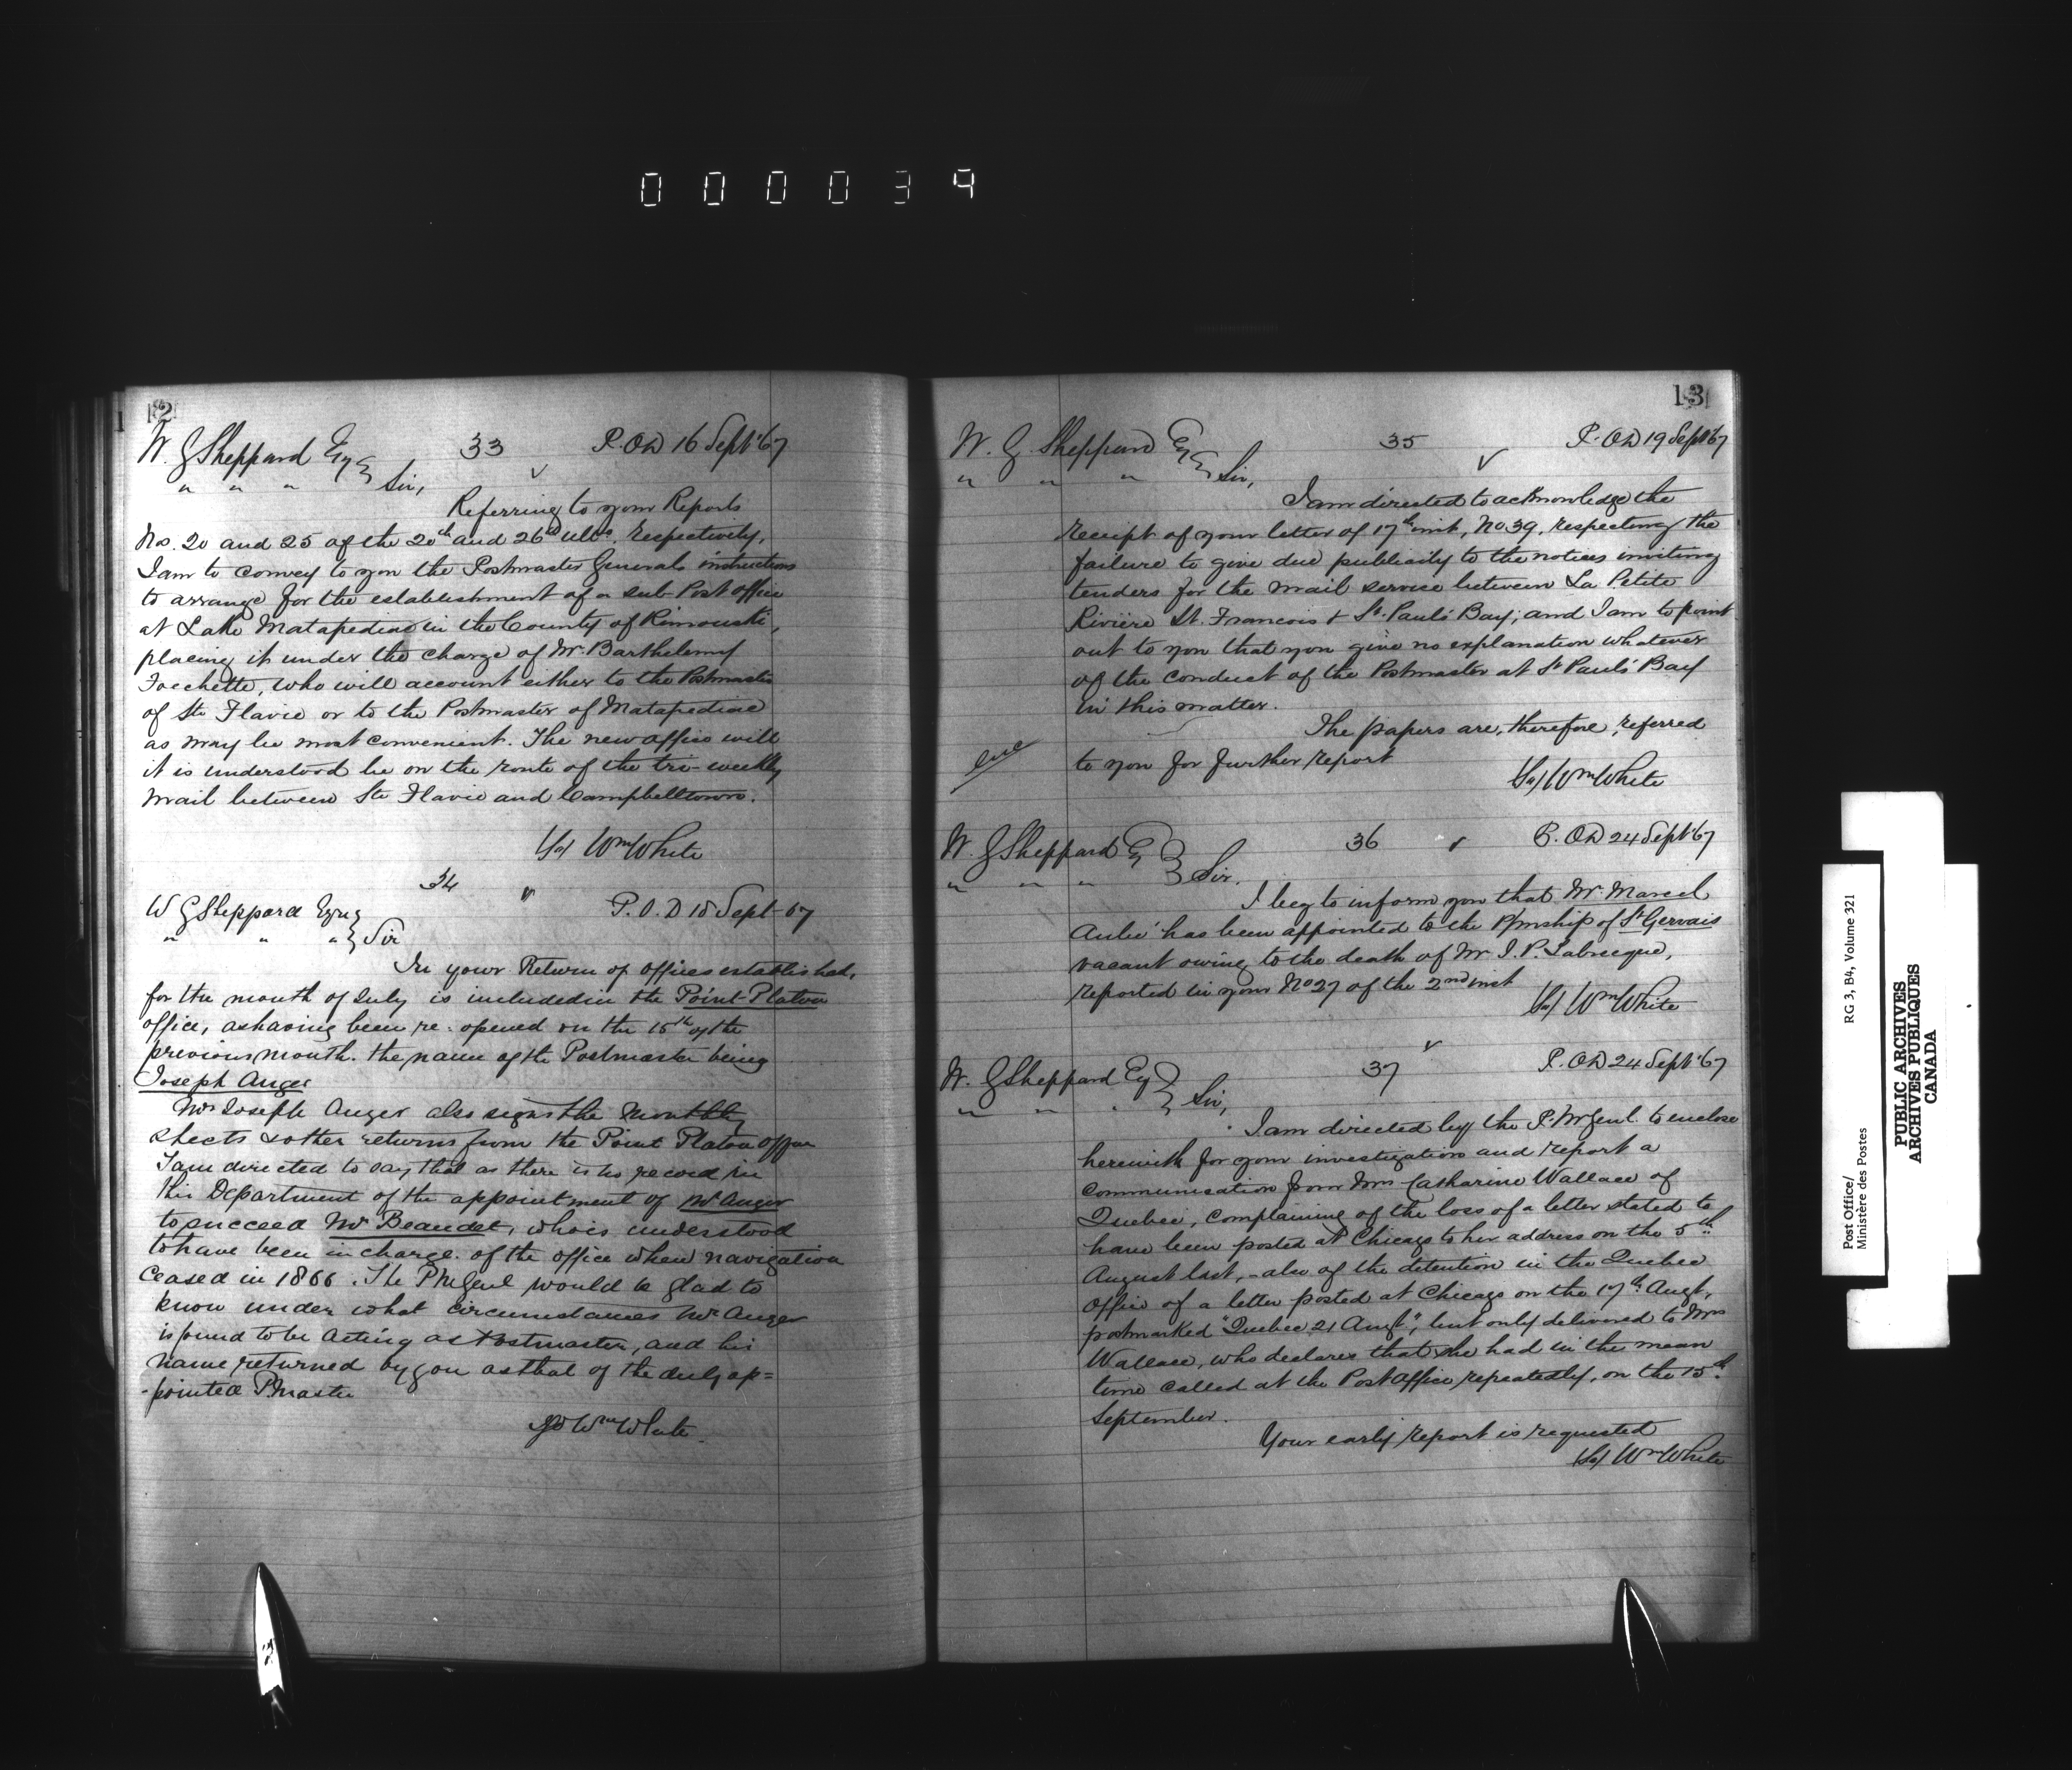 000039
12
W. G Sheppard Esq 33 P.O.D 16 Sept '67
" " " Sir,
Referring to your Reports
Nos. 20 and 25 of the 20th and 26th ulto. respectively,
I am to convey to you the Postmaster Generals instructions
to arrange for the establishment of a sub Post office
at Lake Matapediac in the County of Rimouski,
placing it under the charge of Mr. Barthelemy
who will account either to the Postmaster
of Ste Flavie or to the Postmaster of Matapediac
as may be most convenient. The new office will
it is understood be on the route of the tri-weekly
mail between Ste Flavie and Campbelltown.
Sd/ Wm White
34
W G Sheppard Esqre P.O.D 18 Sept 67
" " " Sir
In your Return of offices established,
for the month of July is included in the Point Platon
office, as having been re-opened on the 15th of the
previous month. the name of the Postmaster being
Joseph Auger
Mr Joseph Auger also signs the monthly
sheets & other returns from the Point Platon office
I am directed to say that as there is no record in
this Department of the appointment of Mr Auger
to succeed Mr Beaudet, who is understood
to have been in charge. of the office when navigation
ceased in 1866. The PM Genl would be glad to
know under what circumstances Mr Auger
is found to be acting as Postmaster, and his
name returned by you as that of the duly ap=
-pointed P.master
Sd Wm White
13
W. G. Sheppard Esq 35 P.O.D 19 Sept '67
" " " Sir,
I am directed to acknowledge the
receipt of your letter of 17th inst, No 39, respecting the
failure to give due publicity to the notices inviting
tenders for the mail service between La Petite
Rivière St. Francois & St. Paul's Bay; and I am to point
out to you that you give no explanation whatever
of the conduct of the Postmaster at St Paul's Bay
in this matter.
The papers are, therefore, referred
to you for further report
Sd/ Wm White
W. G Sheppard Eq 36 P.O.D 24 Sept '67
" " " Sir.
I beg to inform you that Mr. Marcel
Aubé has been appointed to the P/mship of St Gervais
vacant owing to the death of Mr J. P. Labrecque,
reported in your No 27 of the 2nd inst
Sd/ Wm White
W. G Sheppard Eq 37 P.O.D 24 Sept '67
" " " Sir,
I am directed by the P. M Genl. to enclose
herewith for your investigation and report a
communication from Mrs Catharine Wallace of
Quebec, complaining of the loss of a letter stated to
have been posted at Chicago to her address on the 5th
August last,- also of the detention in the Quebec
office of a letter posted at Chicago on the 17th Augt,
postmarked "Quebec 21 Augt", but only delivered to Mrs
Wallace, who declares that she had in the mean
time called at the Post office repeatedly, on the 15th
September.
Your early report is requested
Sd/ Wm White
Post Office/ RG 3, B4, Volume 321
Ministère des Postes
PUBLIC ARCHIVES
ARCHIVES PUBLIQUES
CANADA